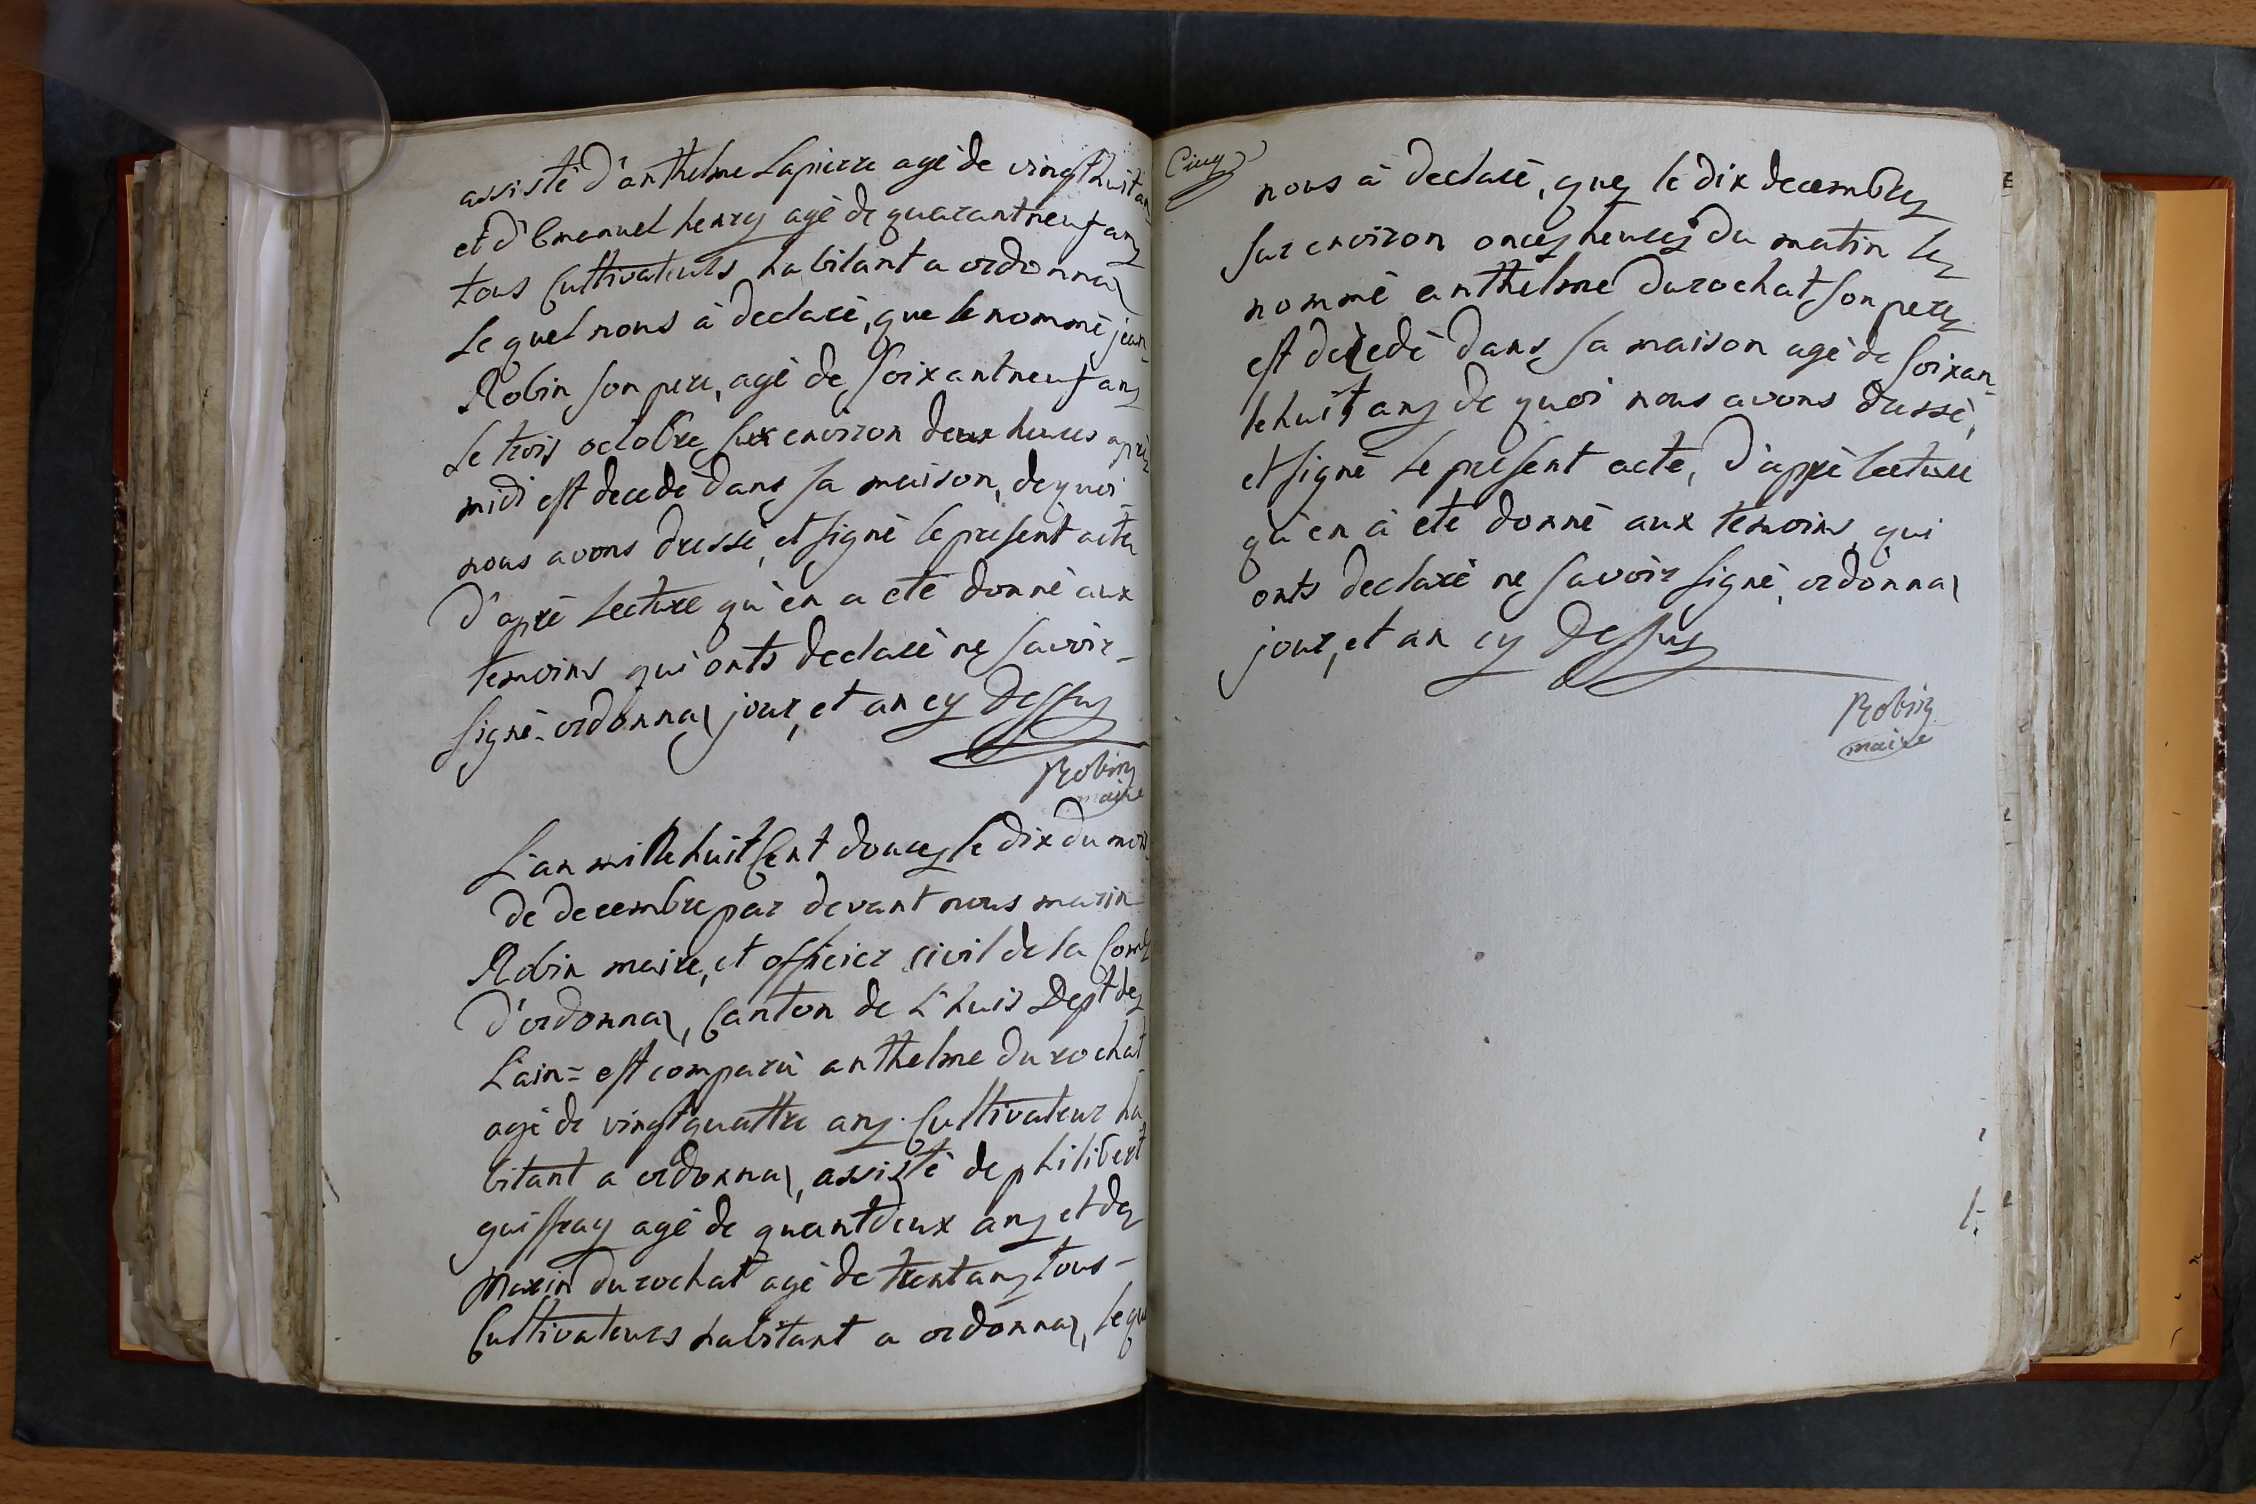 assisté d'anthelme Lapierre agé de vingt huit an
et d'Emanuel henry agé de quarantneuf ans
tous Cultivateurs habitant a ordonnaz
Le quel nous à declaré, que le nommé jean
Robin son pere, agé de soixantneuf ans
Le trois octobre sur environ deux heures aprés
midi est decedé dans sa maison, de quoi
nous avons dressé, et signé le present acte
d'apré Lecture qu'en a eté donné aux
temoins qui onts declaré ne savoir
signé. ordonnaz jour, et an cy Dessus
Robin
maire
L'an mille huit Cent douze le dix du mois
de decembre par devant nous marin
Robin maire, et officier civil de la Come
d'ordonnaz, Canton de L'huis Dept de
L'ain = est comparu anthelme durochat
agé de vingt quattre ans. Cultivateur ha
bitant a ordonnaz, assisté de philibert
guiffray agé de quantdeux ans et de
Marin durochat agé de trentans tous
Cultivateurs habitant a ordonnaz, le quel
Cinq
nous à declaré, que le dix decembre
sur environ onze heures du matin le
nommé anthelme durochat son pere
est decedé dans sa maison agé de soixan
te huit ans de quoi nous avons dressé,
et signé Le present acte, d'apré lecture
qu'en à eté donné aux temoins, qui
onts declaré ne savoir signé, ordonnaz
jour, et an cy Dessus
Robin
maire